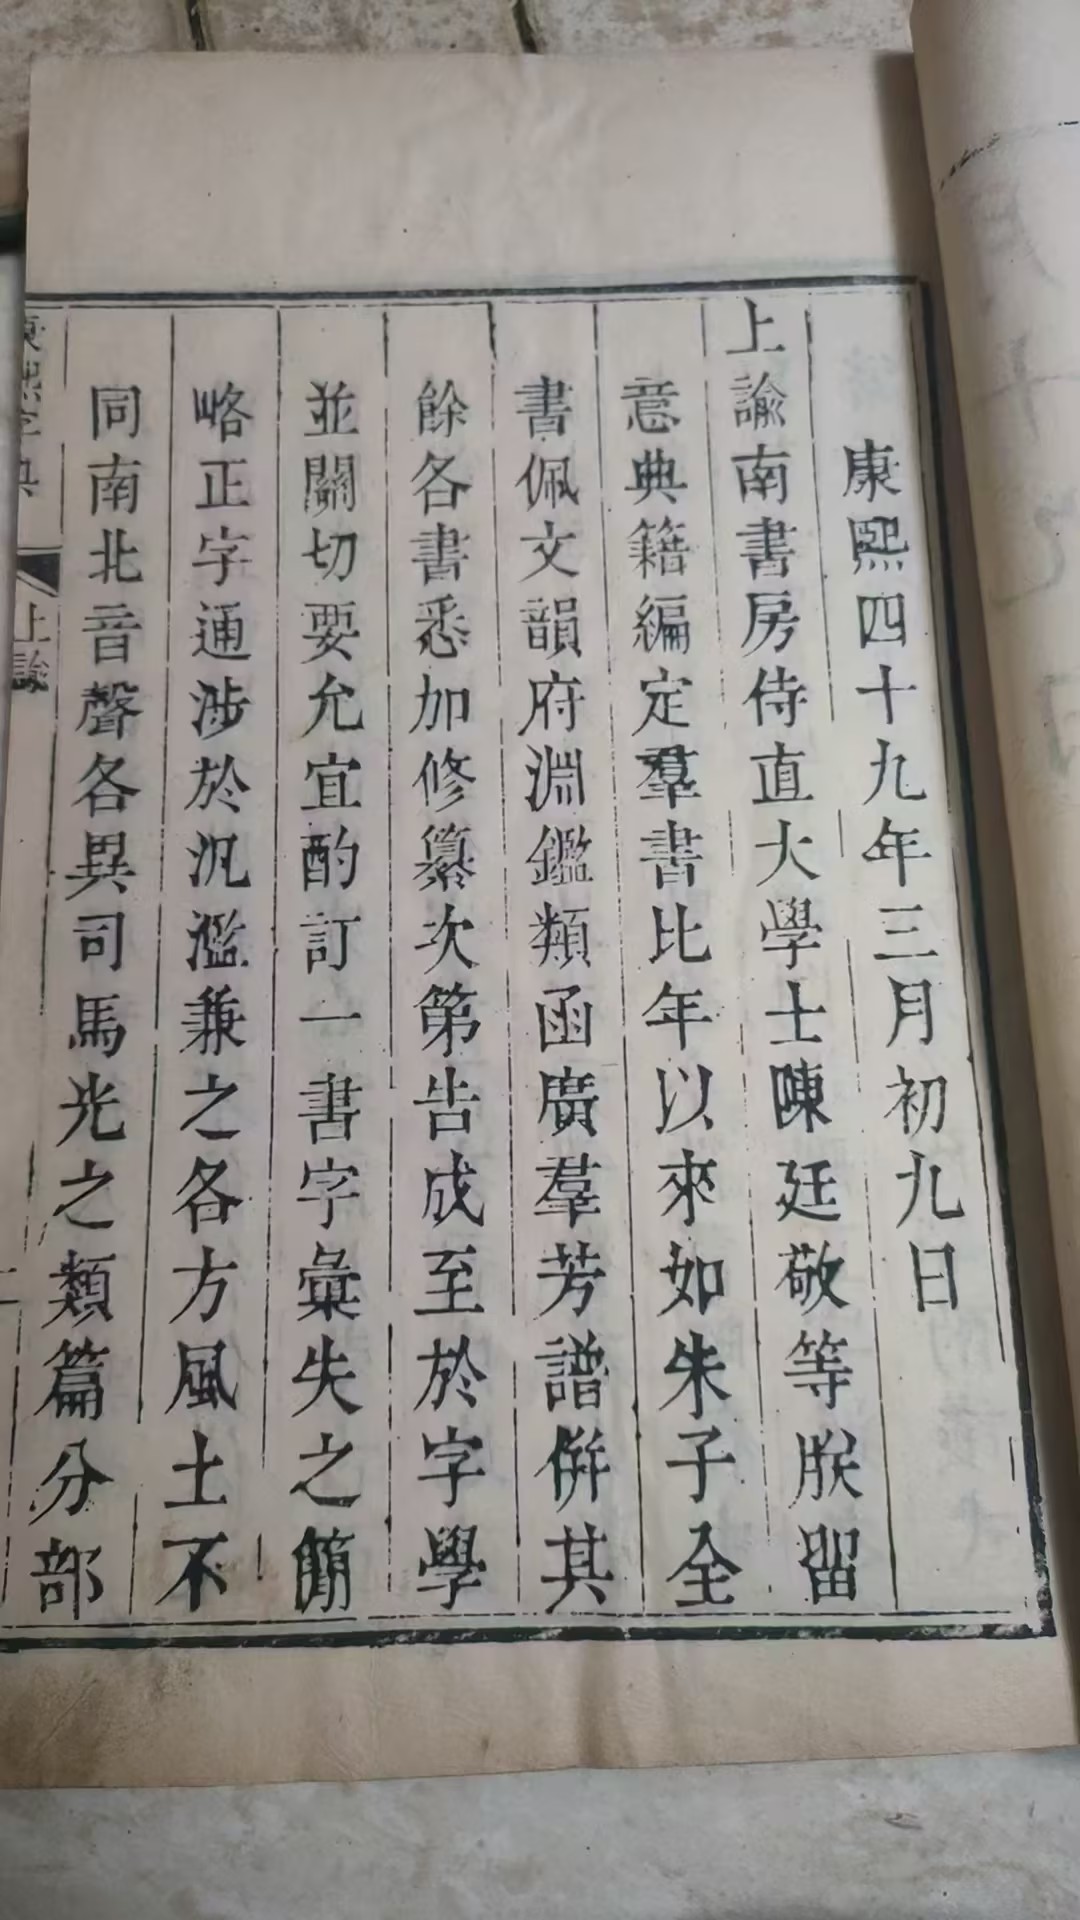 康熙四十九年三月初九日
上諭南書房侍直大學士陳廷敬等朕留
意典籍編定羣書比年以來如朱子全
書佩文韻府淵鑑類函廣羣芳譜併其
餘各書悉加修纂次第告成至於字學
並關切要允宜酌訂一書字彙失之簡
略正字通涉於汎濫兼之各方風土不
同南北音聲各異司馬光之類篇分部
康熙字典
上諭
一